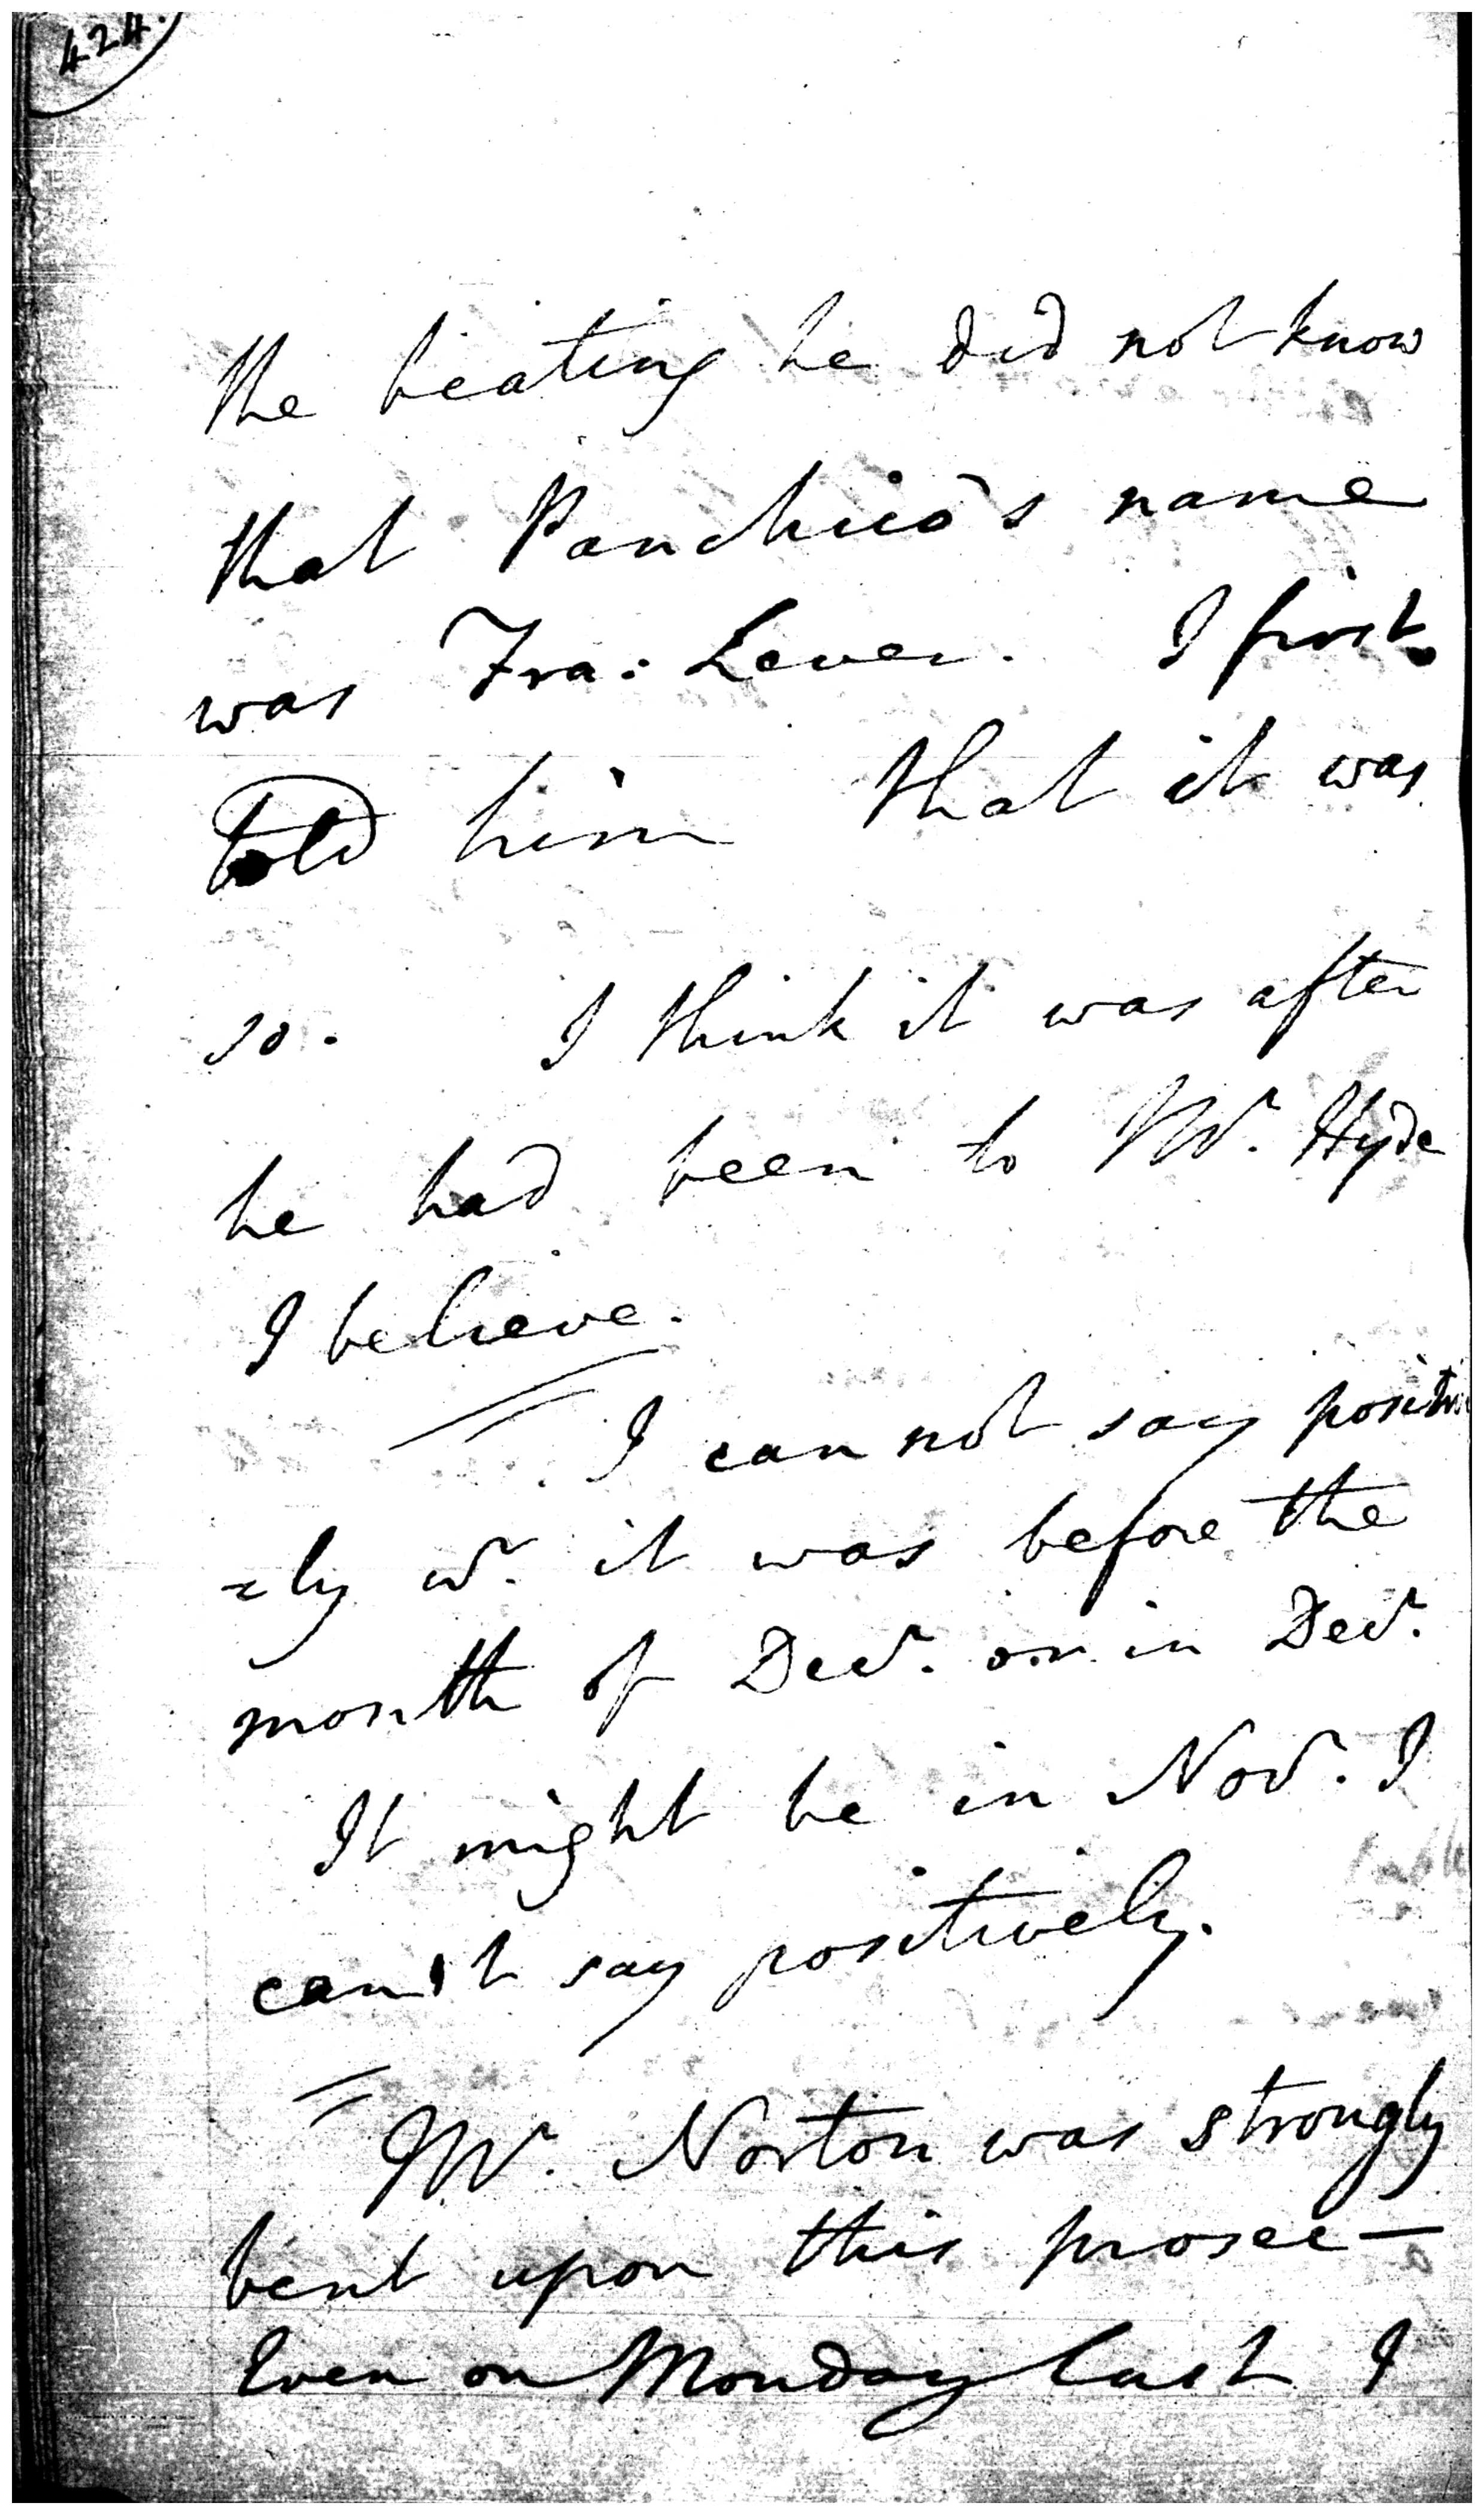 424.
the beating he did not know
that Panchico's name
was Fra: Lever. I first
told him that it was
so. I think it was after
he had been to Mr. Hyde
I believe.
I can not say positive
=ly wr. it was before the
month of Decr. or in Decr.
It might be in Novr. I
can't say positively.
Mr. Norton was strongly
bent upon this prosec—
Even on Monday last I